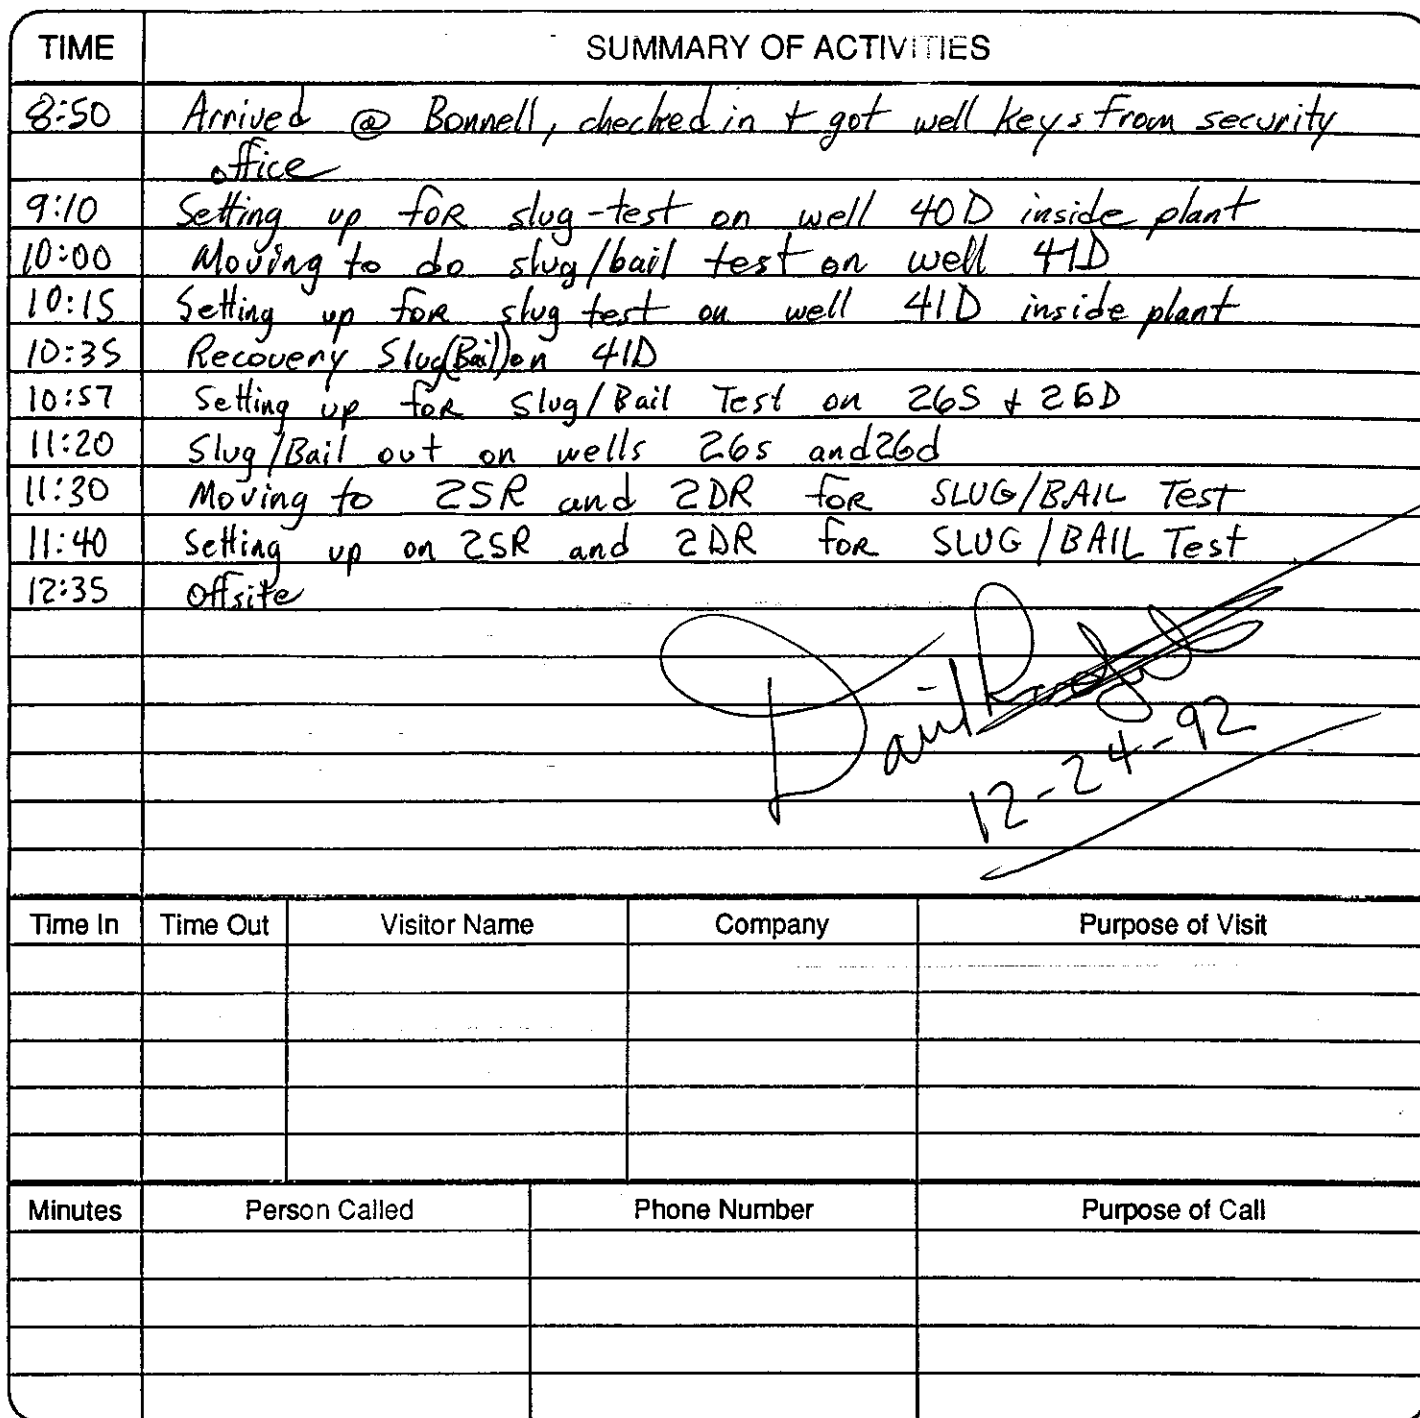 TIME SUMMARY OF ACTIVITIES
8:50 Arrived @ Bonnell, checked in + got well keys from security
office
9:10 Setting up foR slug-test on well 40D inside plant
10:00 Moving to do slug/bail test on well 41D
10:15 Setting up foR slug test on well 41D inside plant
10:35 Recovery Slug(Bail) on 41D
10:57 Setting up foR Slug/Bail Test on 26S + 26D
11:20 Slug/Bail out on wells 26s and 26d
11:30 Moving to 2SR and 2DR foR SLUG/BAIL Test
11:40 Setting up on 2SR and 2DR foR SLUG/BAIL Test
12:35 Offsite
David
12-24-92
Time In Time Out Visitor Name Company Purpose of Visit
Minutes Person Called Phone Number Purpose of Call